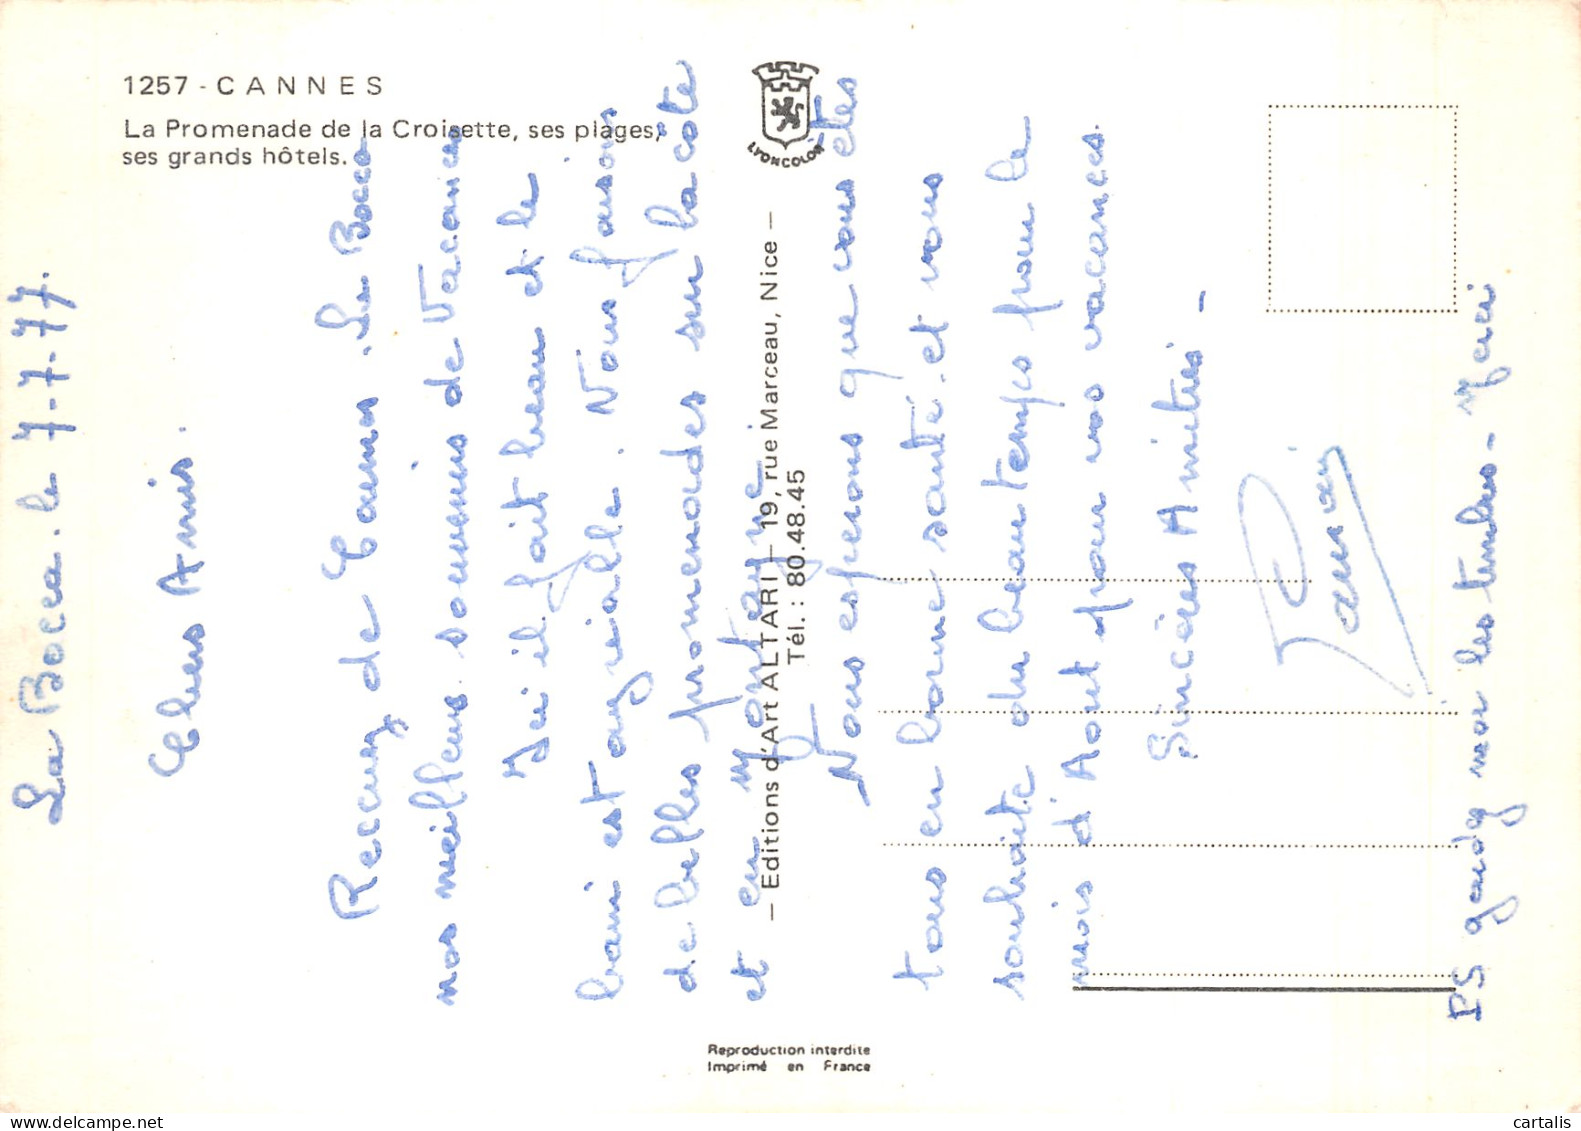 1257 - CANNES
La Promenade de la Croisette, ses plages,
ses grands hôtels.
LYONCOLOR
— Editions d'Art ALTARI — 19, rue Marceau, Nice —
Tél. : 80.48.45
Reproduction interdite
Imprimé en France
La Bocca. le 7-7-77.
Chers Amis.
Recevez de Cannes. La Bocca
nos meilleurs souvenirs de Vacances
Ici il fait beau et le
bain est agréable. Nous faisons
de belles promenades sur la côte
et en montagne
Nous esperons que vous êtes
tous en bonne santé. et vous
souhaite du beau temps pour le
mois d'Aout pour vos vacances.
Sincères Amitiés -
PS gardez moi les timbres - Merci
cartalis